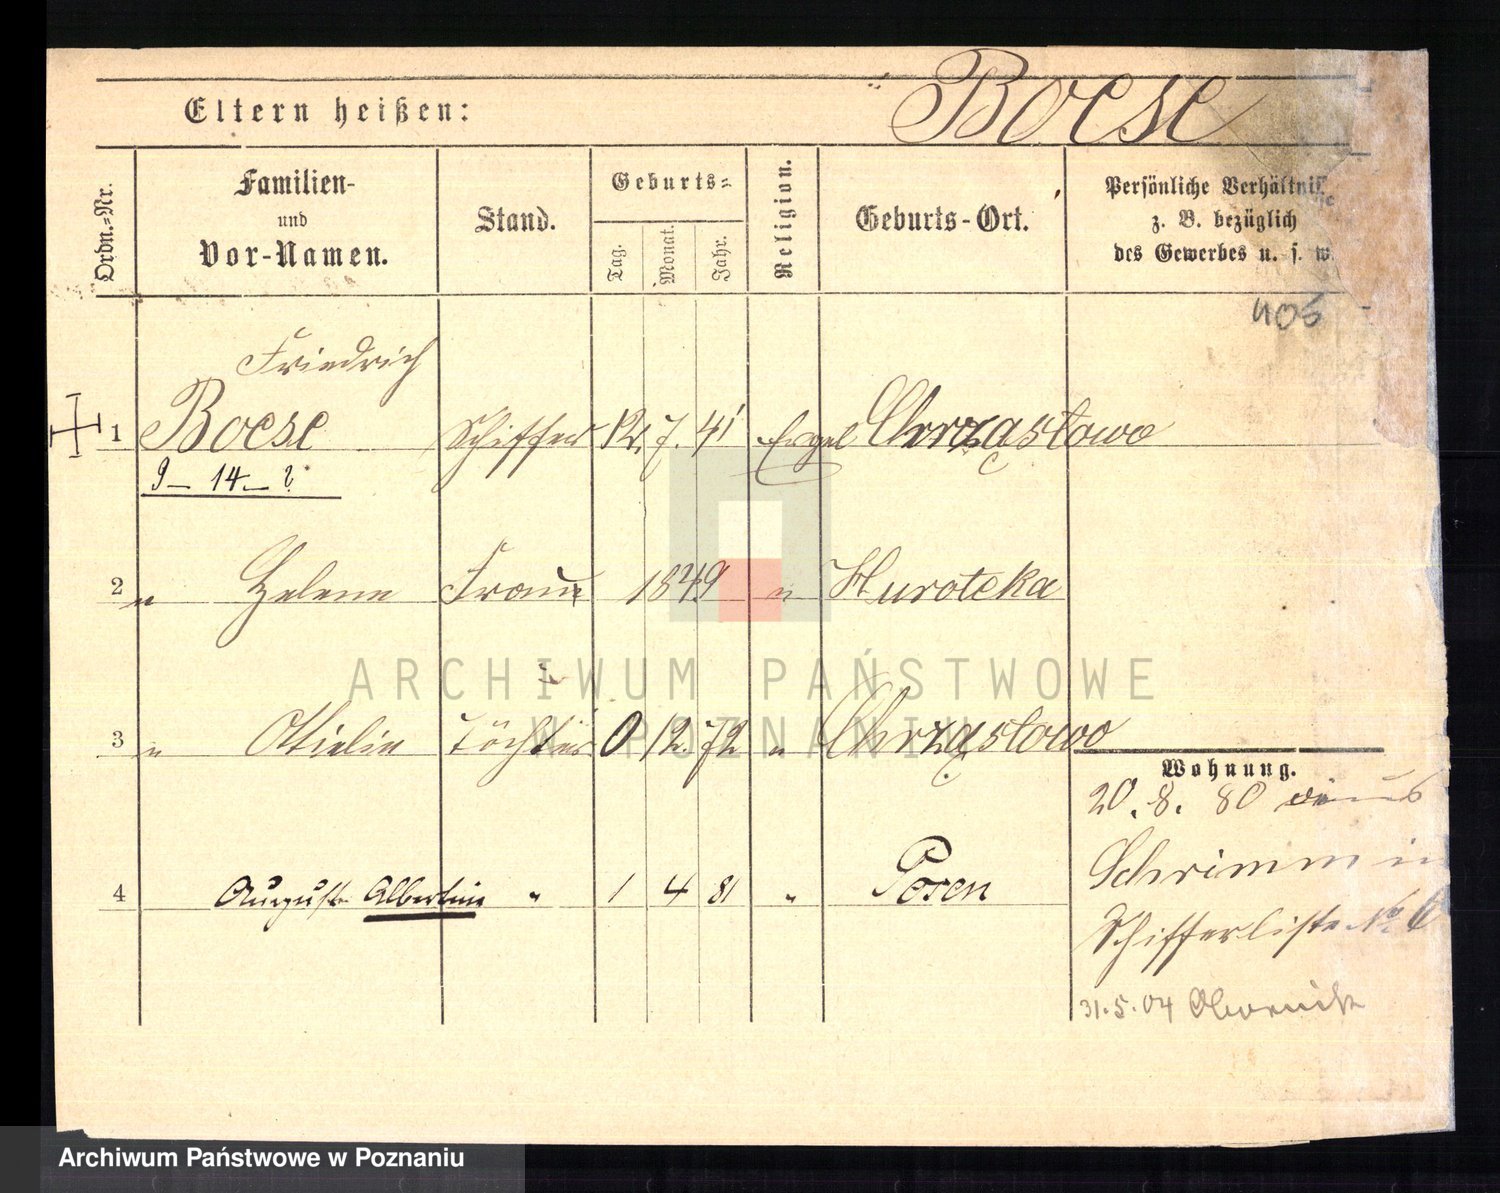 Eltern heißen:
Boese
Ordn.=Nr.
Familien-
und
Vor-Namen.
Stand.
Geburts=
Tag.
Monat.
Jahr.
Religion.
Geburts-Ort.
Persönliche Verhältnisse
z. B. bezüglich
des Gewerbes u. s. w.
405
Friedrich
1 Boese Schiffer 12. 7. 41 Evgel Chrząstowo
9 - 14 - ?
2 " Helene Frau 1849 "
3 " Ottilie Tochter 0 12. 72 " Chrząstowo
4 August Albertine " 1 4 81 " Posen
Wohnung.
20. 8. 80
Schrimm in
Schifferliste No 6
31.5.04 Obornik
ARCHIWUM PAŃSTWOWE
W POZNANIU
Archiwum Państwowe w Poznaniu